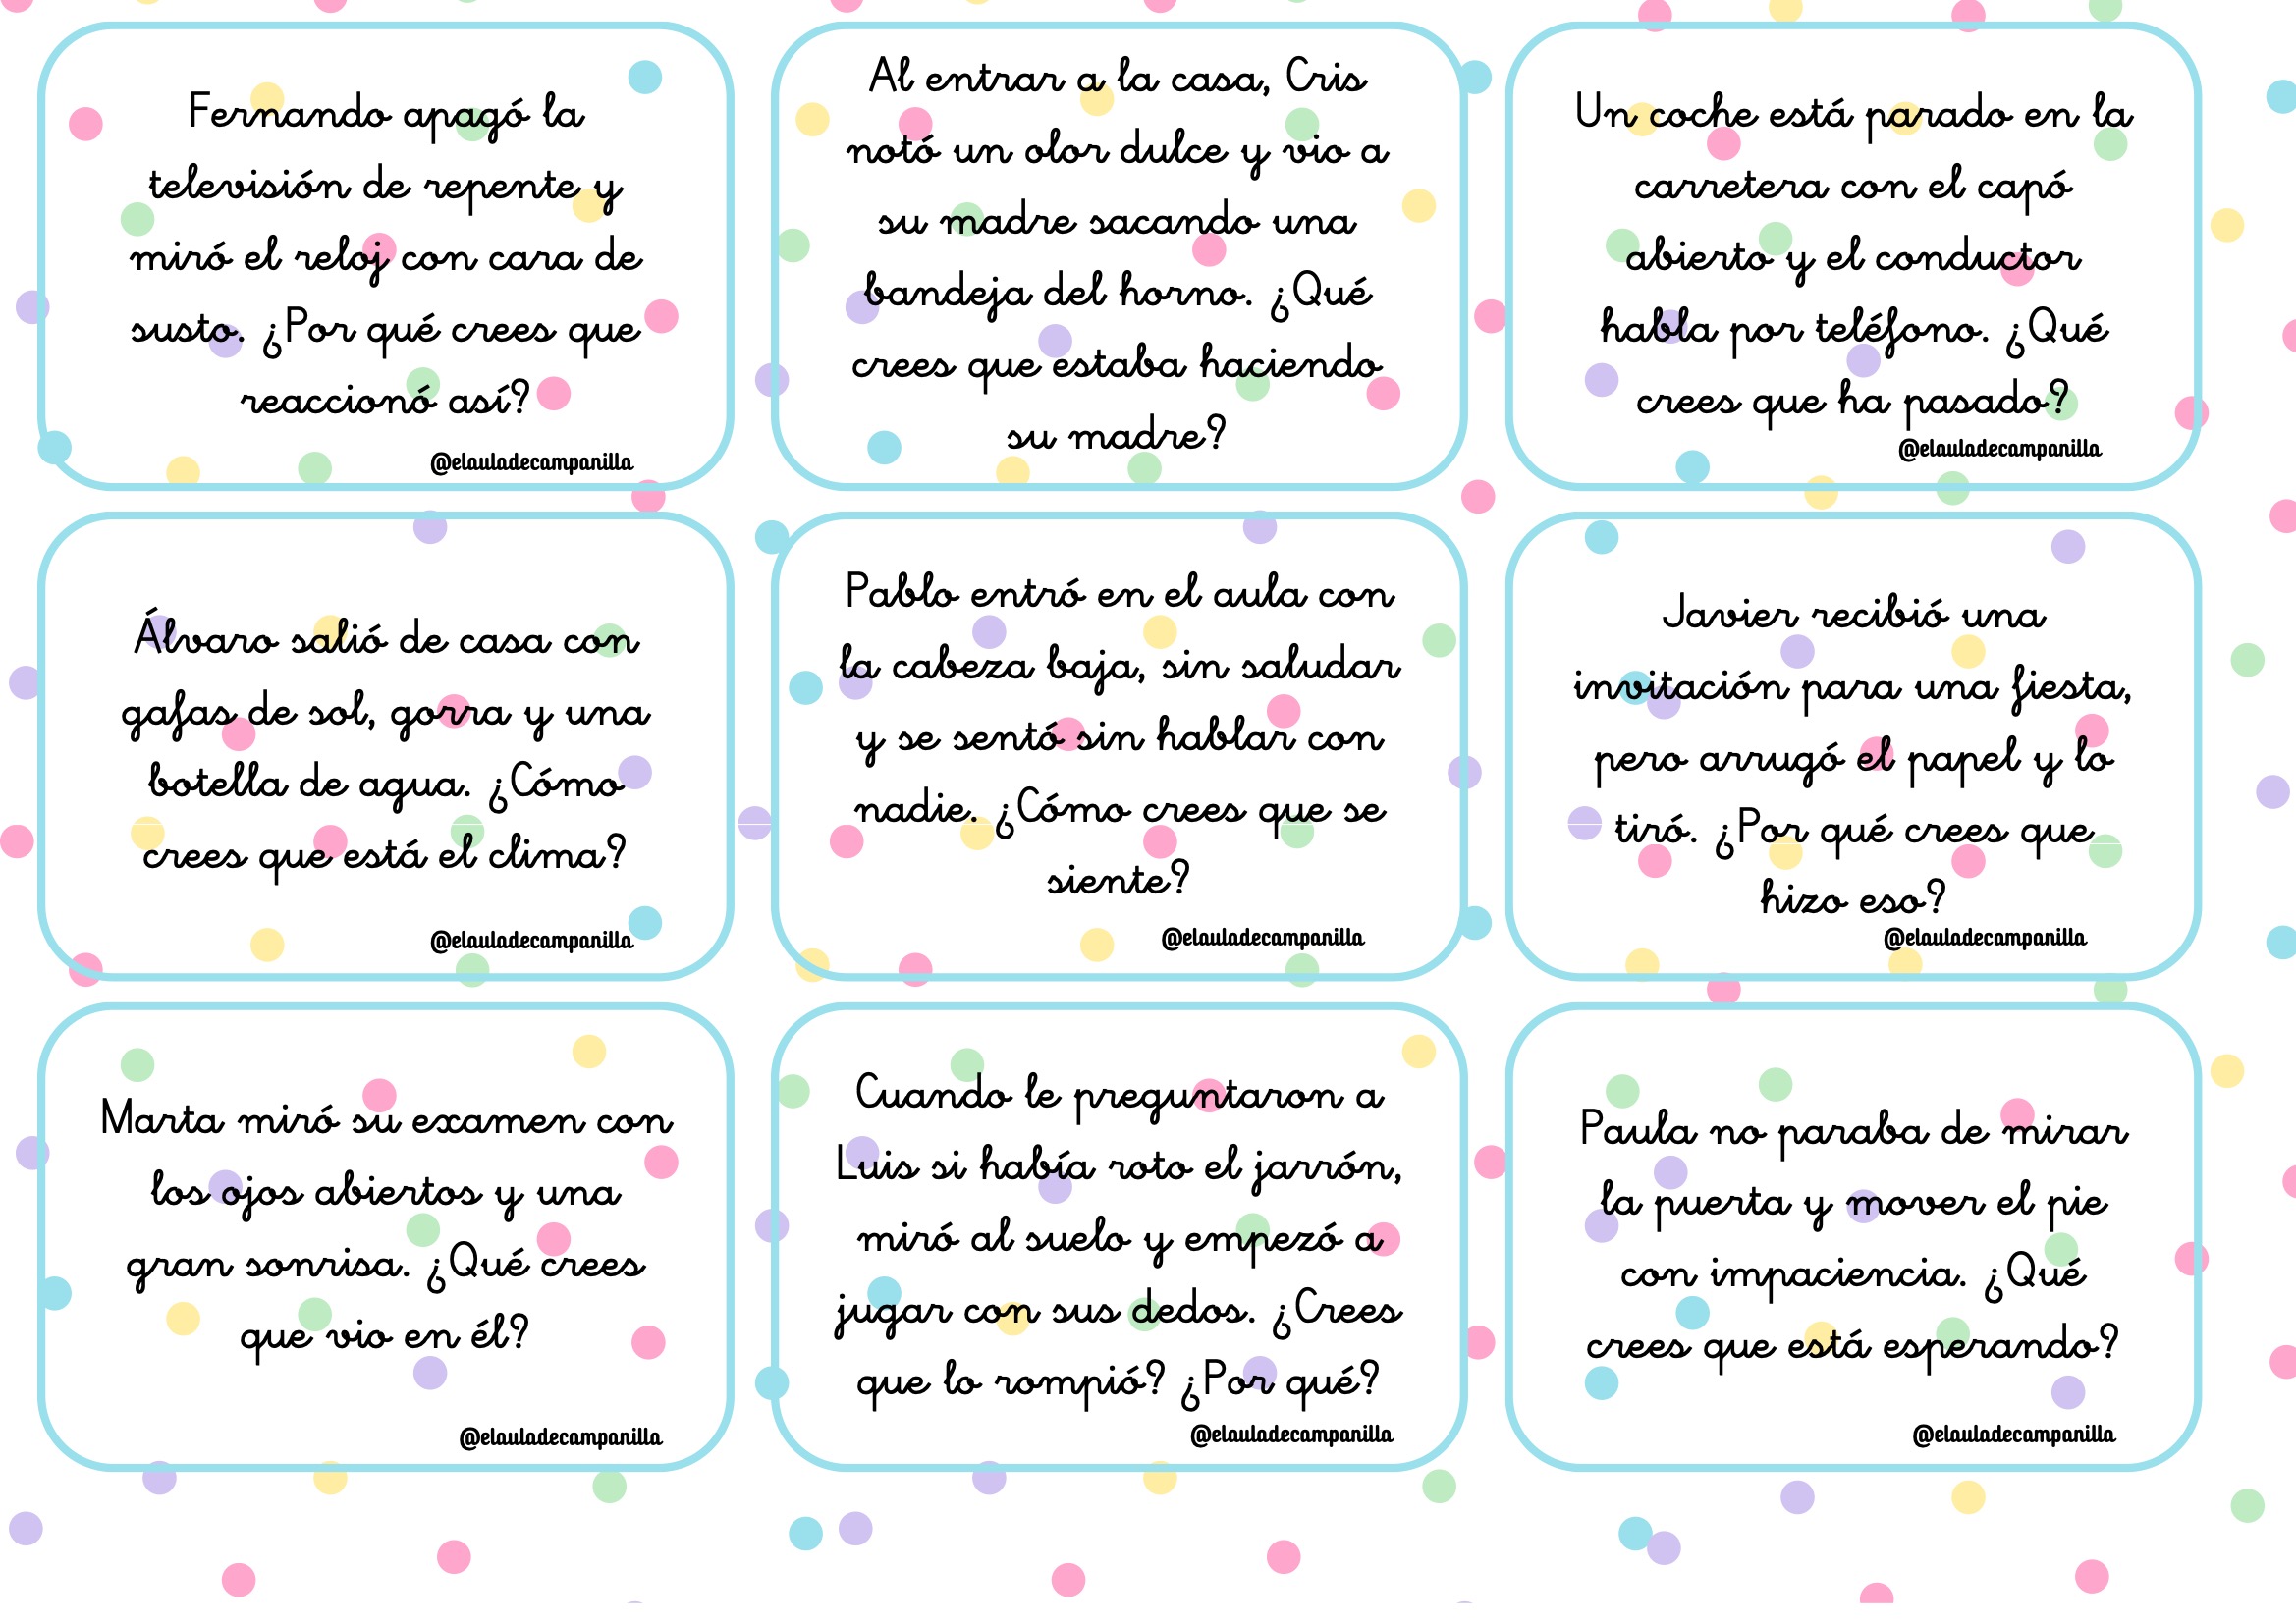 Fernando apagó la
televisión de repente y
miró el reloj con cara de
susto. ¿Por qué crees que
reaccionó así?
@elauladecampanilla
Al entrar a la casa, Cris
notó un olor dulce y vio a
su madre sacando una
bandeja del horno. ¿Qué
crees que estaba haciendo
su madre?
Un coche está parado en la
carretera con el capó
abierto y el conductor
habla por teléfono. ¿Qué
crees que ha pasado?
@elauladecampanilla
Álvaro salió de casa con
gafas de sol, gorra y una
botella de agua. ¿Cómo
crees que está el clima?
@elauladecampanilla
Pablo entró en el aula con
la cabeza baja, sin saludar
y se sentó sin hablar con
nadie. ¿Cómo crees que se
siente?
@elauladecampanilla
Javier recibió una
invitación para una fiesta,
pero arrugó el papel y lo
tiró. ¿Por qué crees que
hizo eso?
@elauladecampanilla
Marta miró su examen con
los ojos abiertos y una
gran sonrisa. ¿Qué crees
que vio en él?
@elauladecampanilla
Cuando le preguntaron a
Luis si había roto el jarrón,
miró al suelo y empezó a
jugar con sus dedos. ¿Crees
que lo rompió? ¿Por qué?
@elauladecampanilla
Paula no paraba de mirar
la puerta y mover el pie
con impaciencia. ¿Qué
crees que está esperando?
@elauladecampanilla